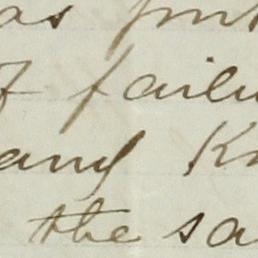 as
of failu
and K
the sa